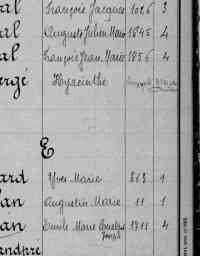 al François Jacques 1026 3
al Auguste Julien Marie 1845 4
al François Jean Marie 1856 4
ergé Hyacinthe
E
ard Yves Marie 263 1
an Augustin Marie 11 1
an Emile Marie 1711 4
Joseph
andpré